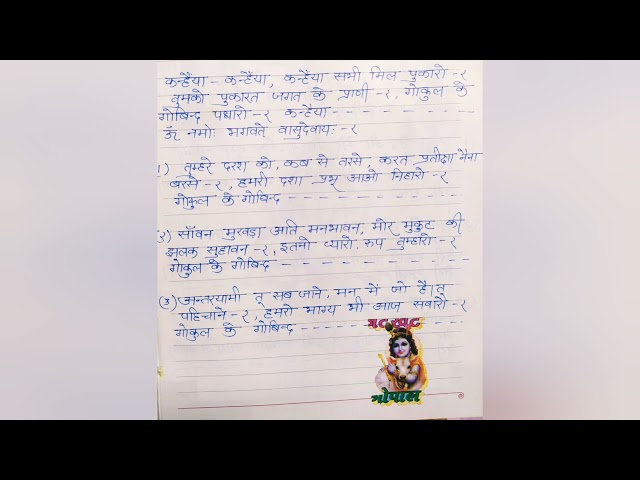 कन्हैया - कन्हैया, कन्हैया सभी मिल पुकारो -२
तुमको पुकारत जगत के प्राणी -२, गोकुल के
गोबिन्द पधारो -२ कन्हैया - - - - - - - -
ॐ नमोः भगवते वासुदेवायः -२
१) तुम्हरे दरश को, कब से तरसे, करत प्रतीक्षा नैना
बरसे -२, हमरी दशा प्रभु आओ निहारो -२
गोकुल के गोबिन्द - - - - - - - - - -
२) साँवन मुखड़ा अति मनभावन, मोर मुकुट की
झलक सुहावन -२, इतनो प्यारो, रुप तुम्हारो -२
गोकुल के गोबिन्द - - - - - - - - - -
(३) अन्तरयामी तू सब जाने, मन में जो है। तू
पहिचाने -२, हमरो भाग्य भी आज सवारो -२
गोकुल के गोबिन्द - - - - - - - - - -
गोपाल